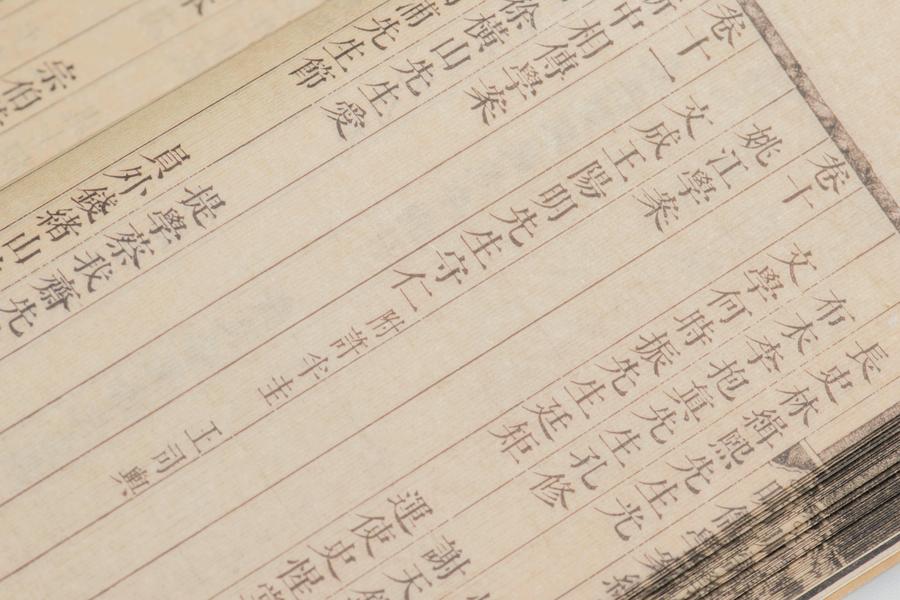 長史林緝熙先生光
布衣李抱真先生孔修
謝天
文學何時振先生廷矩
運使史惺堂
卷十
姚江學案
文成王陽明先生守仁 附許半圭
王司輿
卷十一
中相傳學案
徐橫山先生愛
提學蔡我齋先
浦先生節
員外錢緒山
宗伯